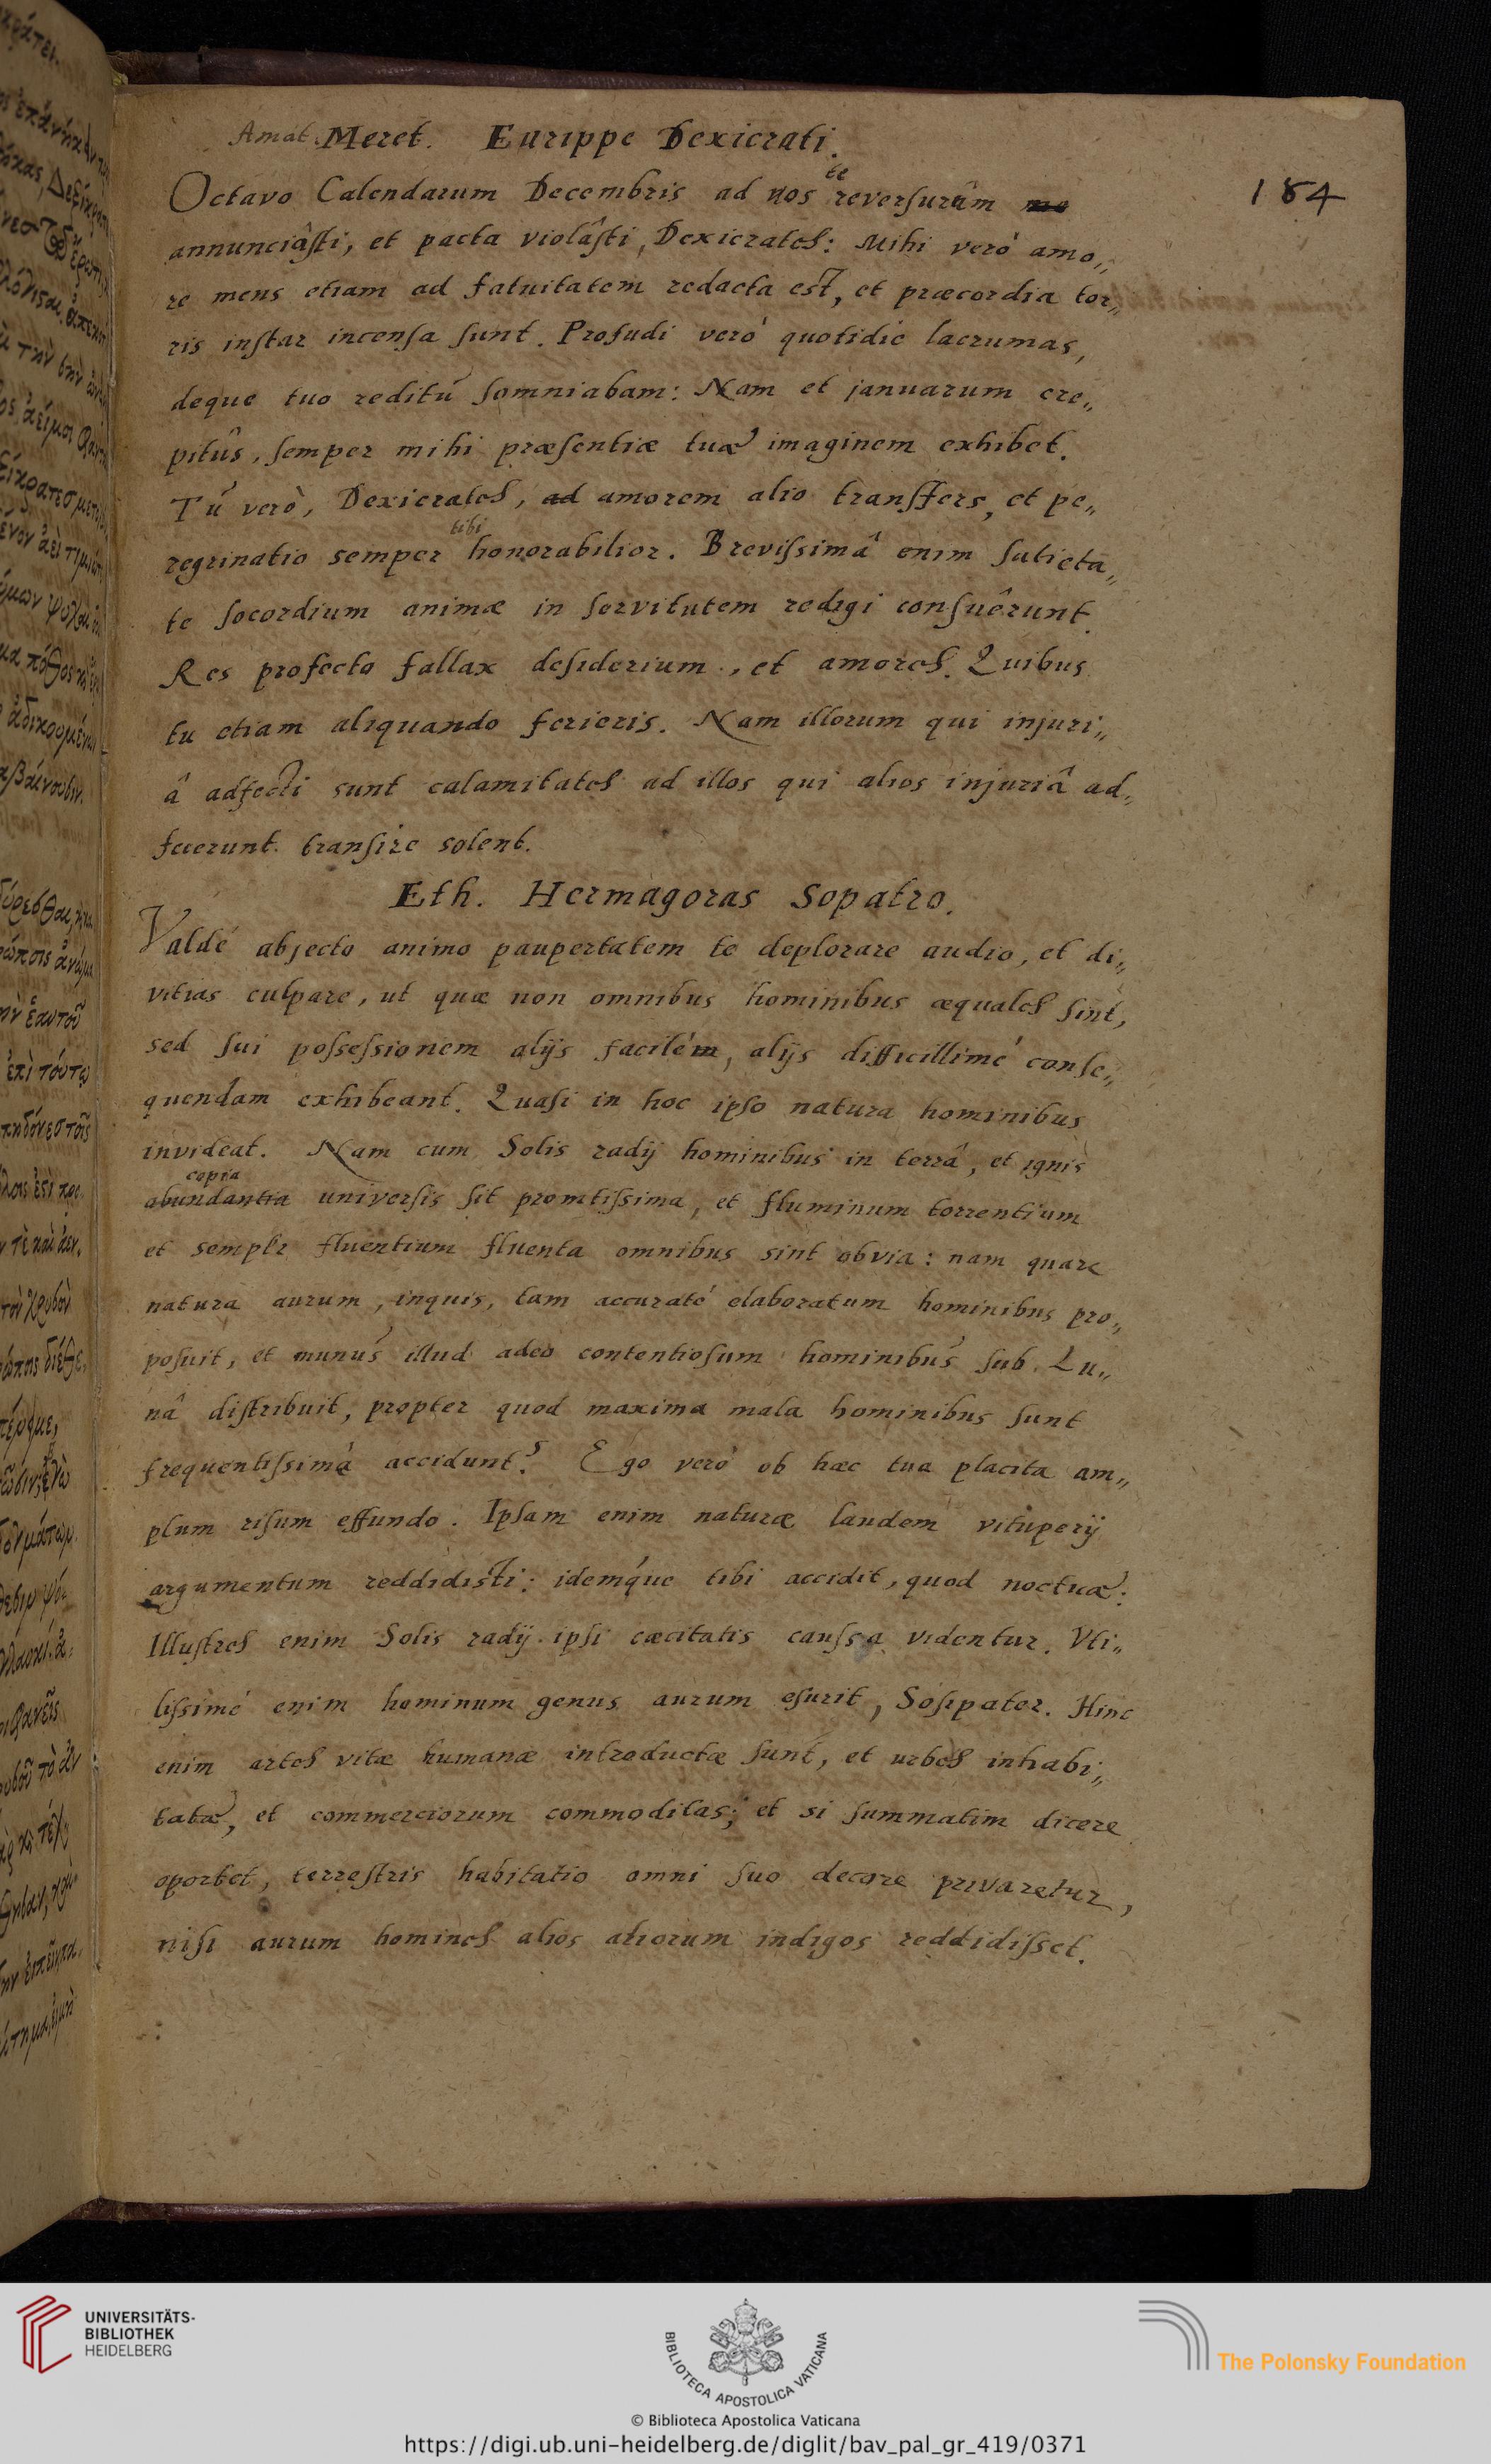 Amat. Meret. Eurippe Dexicrati.
te
Octavo Calendarum Decembris ad nos reversurûm me
184
annunciâsti, et pacta violâsti, Dexicrates: Mihi verò amo„
re mens etiam ad fatuitatem redacta est, et præcordia tor„
ris instar incensa sunt. Profudi verò quotidie lacrumas,
deque tuo reditu somniabam: Nam et januarum cre„
pitûs, semper mihi præsentiæ tuæ imaginem exhibet.
Tu verò, Dexicrates, ad amorem alio transfers, et pe„
tibi
regrinatio semper honorabilior. Brevissimâ enim satieta„
te socordium animæ in servitutem redigi consuêrunt.
Res profecto fallax desiderium, et amores. Quibus
tu etiam aliquando ferieris. Nam illorum qui injuri„
â adfecti sunt calamitates ad illos qui alios injuriâ ad„
fecerunt transire solent.
Eth. Hermagoras Sopatro.
Valdé abjecto animo paupertatem te deplorare audio, et di„
vitias culpare, ut quæ non omnibus hominibus æquales sint,
sed sui possessionem alijs facilém, alijs difficillimé conse„
quendam exhibeant. Quasi in hoc ipso natura hominibus
invideat. Nam cum Solis radij hominibus in terrâ, et ignis
copia
abundantia universis sit promtissima, et fluminum torrentium
et semper fluentium fluenta omnibus sint obvia: nam quare
natura aurum, inquis, tam accuraté elaboratum hominibus pro„
posuit, et munus illud adeo contentiosum hominibus sub Lu„
nâ distribuit, propter quod maxima mala hominibus sunt
frequentissimà accidunt? Ego verò ob hæc tua placita am„
plum risum effundo. Ipsam enim naturæ laudem vituperij
argumentum reddidisti: idemq́ue tibi accidit, quod noctuæ:
Illustres enim Solis radij ipsi cæcitatis caussa videntur. Vti„
lissimé enim hominum genus aurum esurit, Sosipater. Hinc
enim artes vitæ humanæ introductæ sunt, et urbes inhabi„
tatæ, et commerciorum commoditas; et si summatim dicere
oportet, terrestris habitatio omni suo decore privaretur,
nisi aurum homines alios aliorum indigos reddidisset.
UNIVERSITÄTS-
BIBLIOTHEK
HEIDELBERG
BIBLIOTECA APOSTOLICA VATICANA
The Polonsky Foundation
© Biblioteca Apostolica Vaticana
https://digi.ub.uni-heidelberg.de/diglit/bav_pal_gr_419/0371